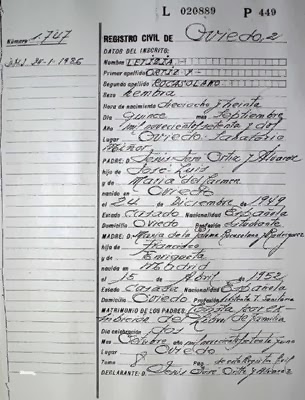 L 020889 P 449
Número 1.747
REGISTRO CIVIL DE Oviedo, 2
DATOS DEL INSCRITO:
Nombre LETIZIA
Primer apellido ORTIZ Y
Segundo apellido ROCASOLANO
Sexo hembra
Hora de nacimiento dieciocho y treinta
Día quince mes septiembre
Año mil novecientos setenta y dos
Lugar Oviedo. Sanatorio
Miñor
PADRE: D. Jesús José Ortiz y Alvarez
hijo de José Luis
y de María del Carmen
nacido en Oviedo
el 24 de Diciembre de 1949
Estado Casado Nacionalidad Española
Domicilio Oviedo Profesión Estudiante
MADRE: D. María de la Paloma Rocasolano y Rodríguez
hija de Francisco
y de Enriqueta
nacida en Madrid
el 15 de Abril de 1952
Estado Casada Nacionalidad Española
Domicilio Oviedo Profesión
MATRIMONIO DE LOS PADRES: Consta por ex-
hibición del Libro de Familia
Día celebración dos
Mes Octubre año mil novecientos setenta y uno
Lugar Oviedo
Tomo
DECLARANTE: D. Jesús José Ortiz y Alvarez